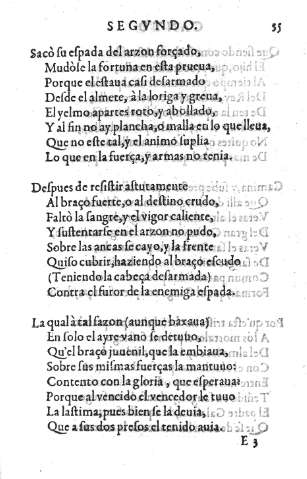 SEGVNDO. 55
Sacò su espada del arzon forçado,
Mudòse la fortuna en esta prueua,
Porque el estaua casi desarmado
Desde el almete, à la loriga y greua,
El yelmo a partes roto, y abollado,
Y al fin no ay plancha, o malla en lo que lleua,
Que no este tal, y el animo suplia
Lo que en la fuerça, y armas no tenia.
Despues de resistir astutamente
Al braço fuerte, o al destino crudo,
Faltò la sangre, y el vigor caliente,
Y sustentarse en el arzon no pudo,
Sobre las ancas se cayo, y la frente
Quiso cubrir, haziendo al braço escudo
(Teniendo la cabeça desarmada)
Contra el furor de la enemiga espada.
La qual à tal sazon (aunque baxaua)
En solo el ayre vano se detuuo,
Qu'el braço juuenil, que la embiaua,
Sobre sus mismas fuerças la mantuuo:
Contento con la gloria, que esperaua:
Porque al vencido el vencedor le tuuo
La lastima, pues bien se la deuia,
Que a sus dos presos el tenido auia.
E 3